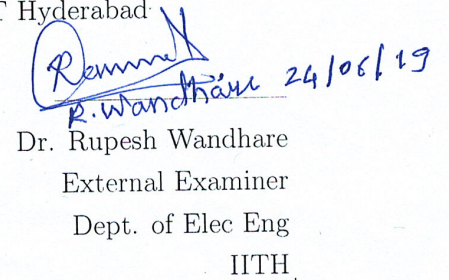 Hyderabad
R. Wandhare 24/06/19
Dr. Rupesh Wandhare
External Examiner
Dept. of Elec Eng
IITH